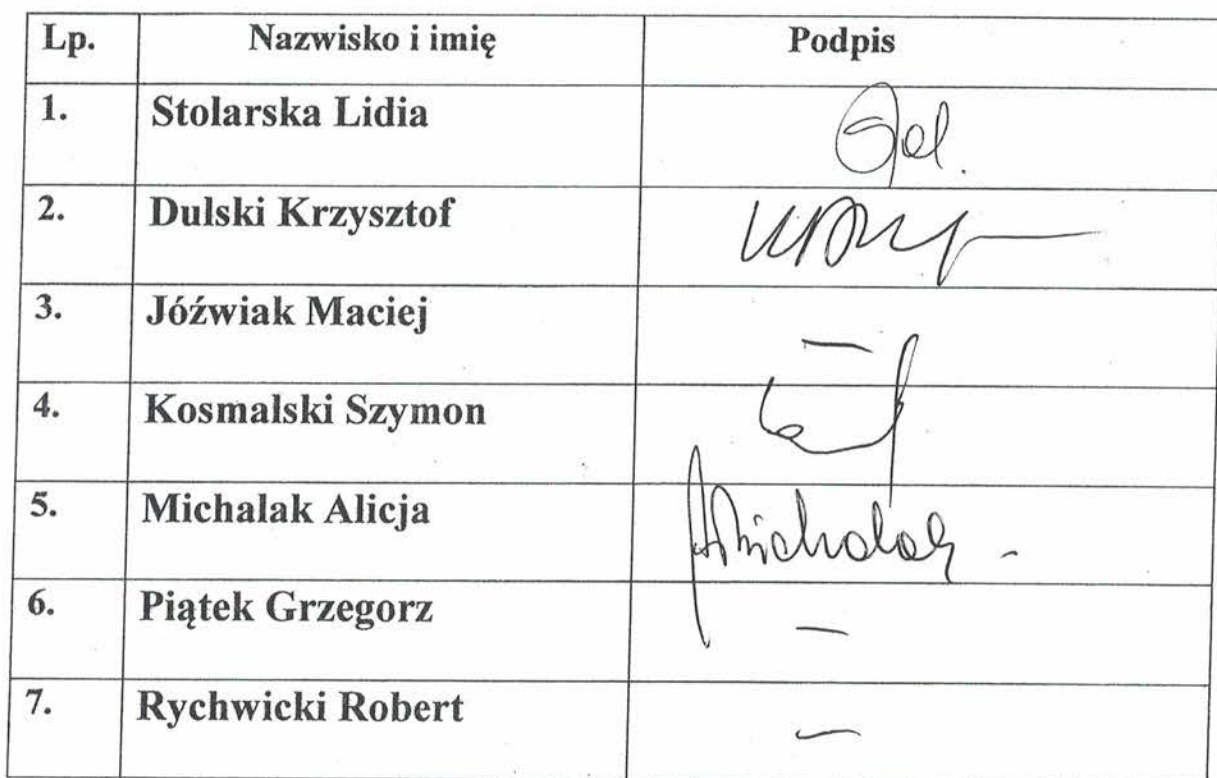 Lp. Nazwisko i imię Podpis
1. Stolarska Lidia
2. Dulski Krzysztof
3. Jóźwiak Maciej –
4. Kosmalski Szymon
5. Michalak Alicja AMichalak -
6. Piątek Grzegorz –
7. Rychwicki Robert –